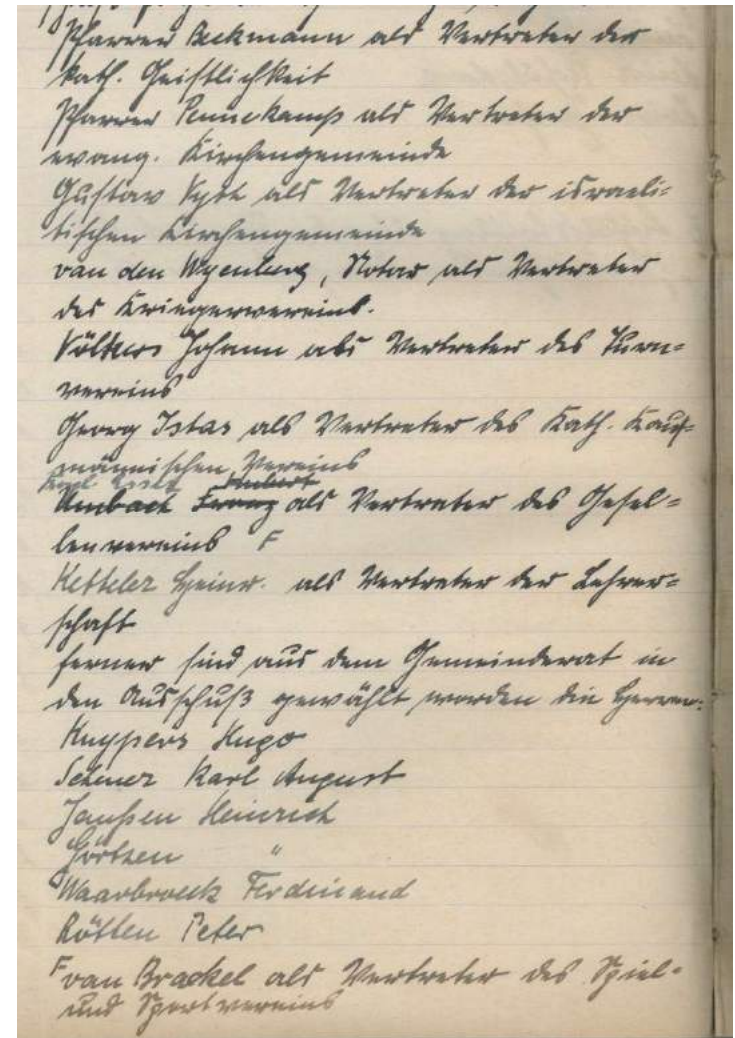 Pfarrer Beckmann als Vertreter der
kath. Geistlichkeit
Pfarrer Pennekamp als Vertreter der
evang. Kirchengemeinde
Gustav Vyth als Vertreter der israeli=
tischen Kirchengemeinde
van den Wyenberg, Notar als Vertreter
des Kriegervereins.
Völkers Johann als Vertreter des Turn=
vereins
Georg Istas als Vertreter des Kath. Kauf=
männischen Vereins
Hubert
Umbach Franz als Vertreter des Gesel=
lenvereins F
Ketteler Heinr. als Vertreter der Lehrer=
schaft
ferner sind aus dem Gemeinderat in
den Ausschuß gewählt worden die Herren:
Kuypers Hugo
Karl August
Janßen Heinrich
"
Waarbroeck Ferdinand
Rötten Peter
F van Brackel als Vertreter des Spiel=
und Sportvereins